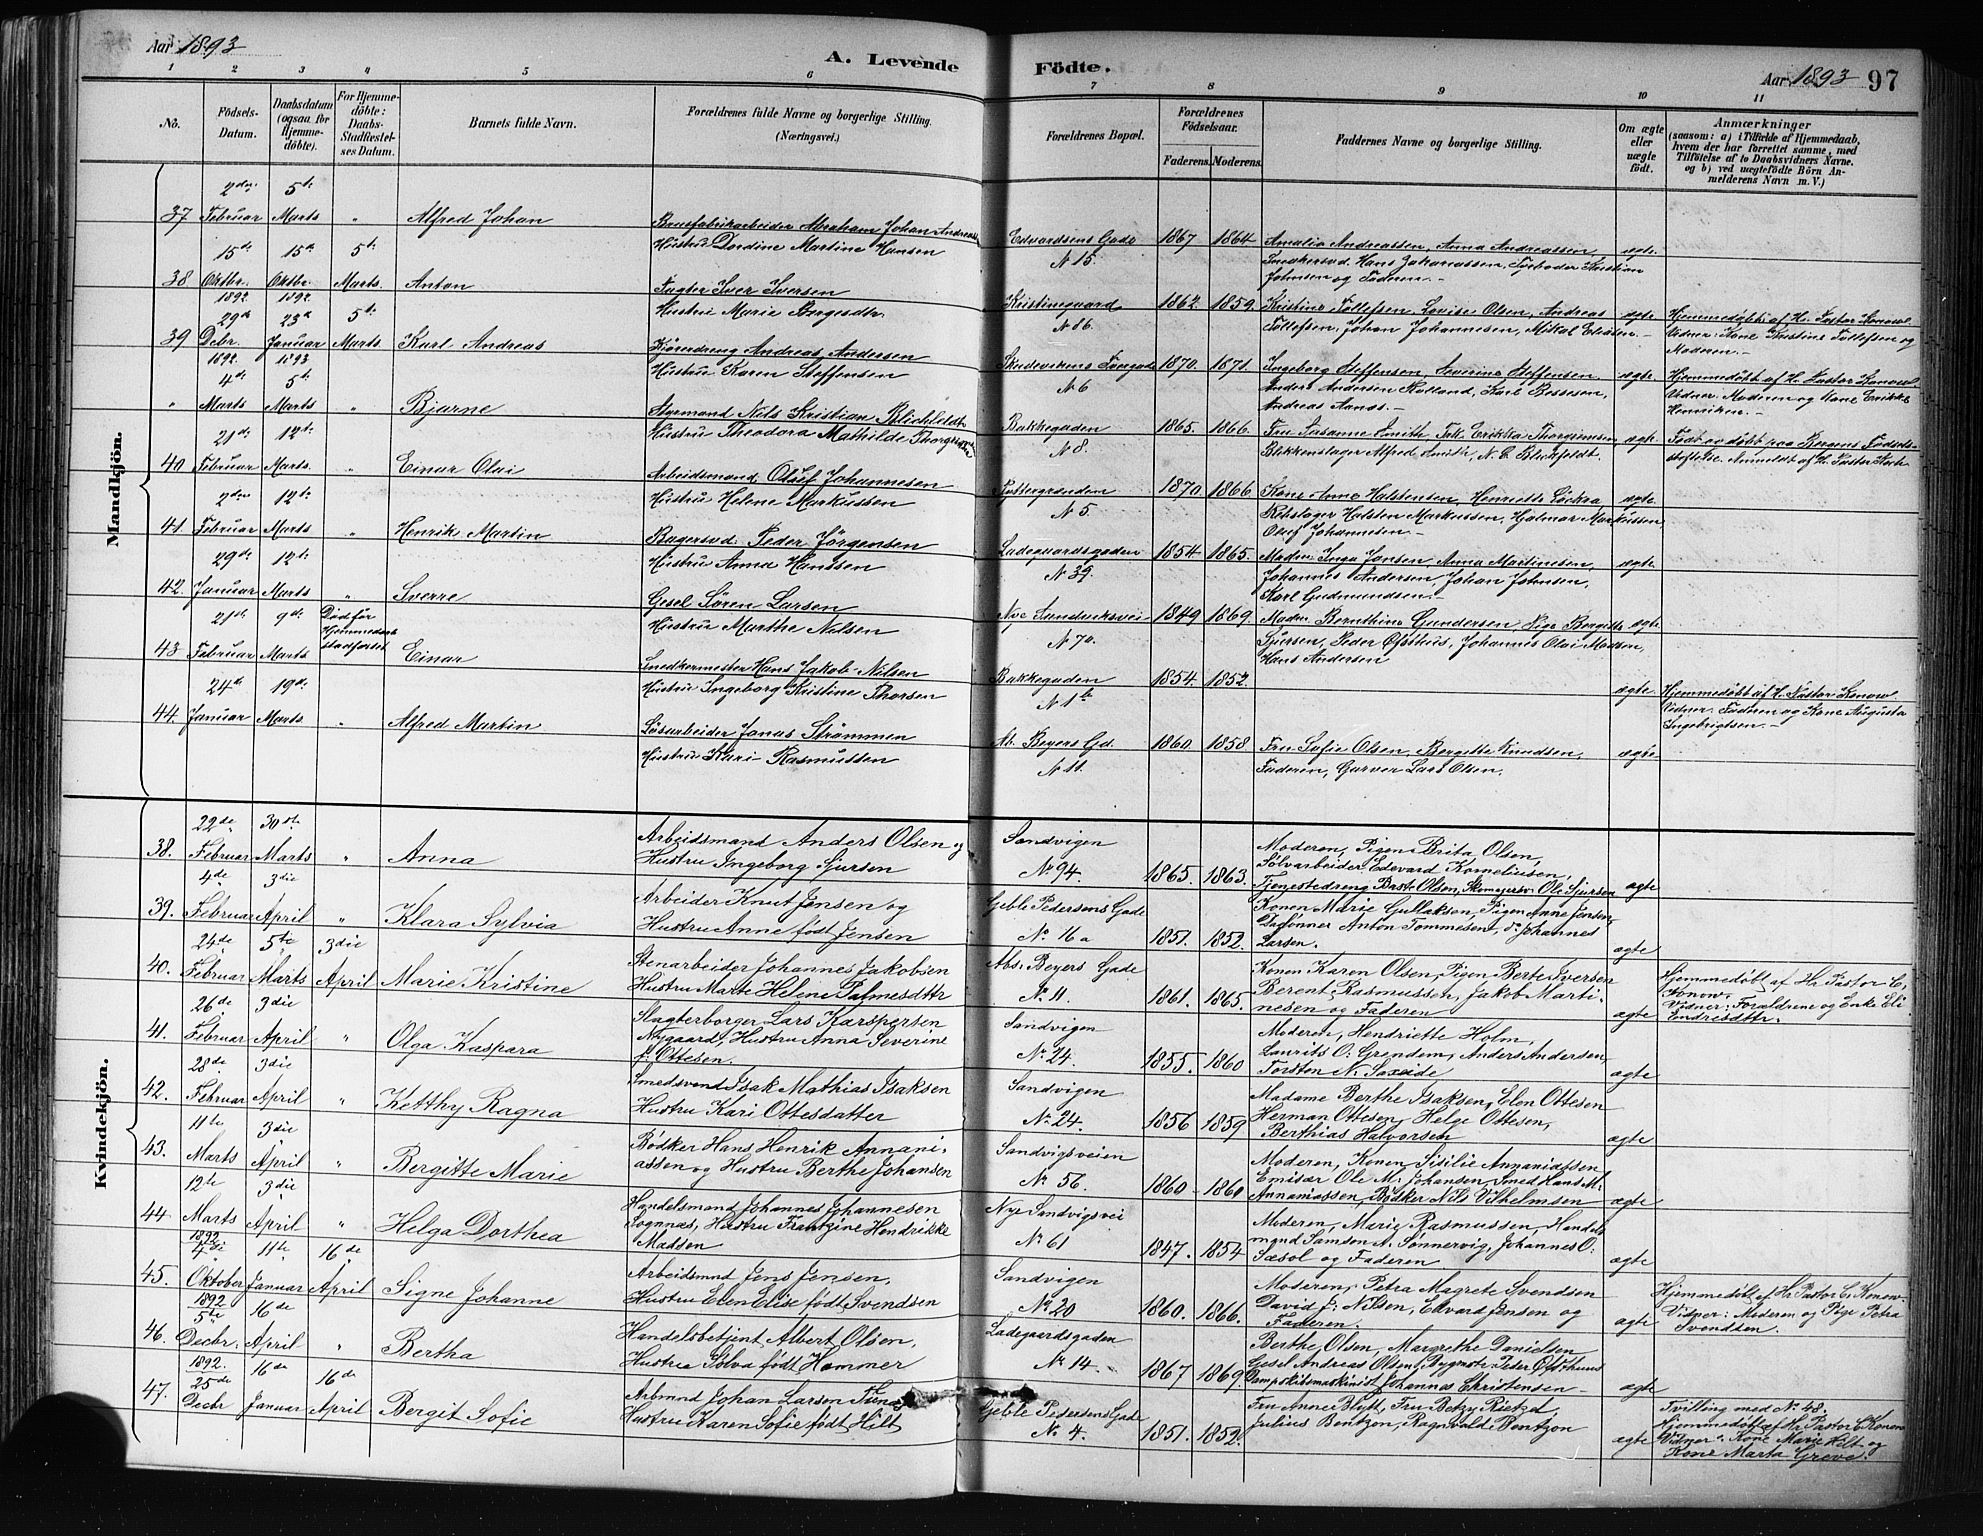 Aar 1893
A. Levende Födte.
Aar 1893 97
1 2 3 4 5 6 7 8 9 10 11
No.
Födsels-Datum.
Daabsdatum (ogsaa for Hjemmedöbte).
For Hjemmedöbte: Daabs-Stadfæstelses Datum.
Barnets fulde Navn.
Forældrenes fulde Navne og borgerlige Stilling. (Næringsvei.)
Forældrenes Bopæl.
Forældrenes Födselsaar.
Faderens. Moderens.
Faddernes Navne og borgerlige Stilling.
Om ægte eller uægte födt.
Anmærkninger
(saasom: a) i Tilfælde af Hjemmedaab, hvem der har forrettet samme, med Tilföielse af to Daabsvidners Navne. og b) ved uægtefödte Börn Anmelderens Navn m. V.)
Mandkjön.
37 2den Februar 5te Marts " Alfred Johan
Abraham Johan Andreas
Hustru Dordine Martine Hansen
Edvardsens Gade N 15. 1867 1864
Amalia Andreassen, Anna Andreassen,
Hans Zakariassen,
Johnsen og Faderen. — ægte.
38 15de Oktbr. 1892 15de Oktbr. 1892 5te Marts. Anton
Iver Iversen
Hustru Marie
Kristinegaard N 86. 1862. 1859.
Kristine Tollefsen, Lovise Olsen, Andreas
Tollefsen, Johan Johannesen, Mikal — ægte
Hjemmedöbt af H. Pastor Konow.
Vidner: Kone Kristine Tollefsen og
Moderen. —
39 29de Debr. 1892. 23de Januar 1893 5te Marts. Karl Andreas
Andreas Andersen
Hustru Karen Steffensen
N 6 1870. 1871.
Ingeborg Steffensen, Severine Steffensen
Anders Andersen
Andreas Aanas. — ægte
Hjemmedöbt af H. Pastor Konow
Vidner: Moderen og Kone
Henriksen. —
" 4de Marts 5te Marts " Bjarne
Styrmand Nils Kristian Blichfeldt
Hustru Theodora Mathilde
Bakkegaden N 8. 1865. 1866.
Fru Susanne Smith,
Blikkenslager Alfred Smith, N. C. Blichfeldt. ægte
Bergens Födsels-
stiftelse. Anmeldt af H. Pastor
40 21de Februar 12te Marts. " Einar Olai
Arbeidsmand Oluf Johannesen
Hustru Helene Markussen
N 5. 1870 1866
Kone Anne Halstensen, Henriette
Halsten Markussen, Hjalmar Markussen
Oluf Johannesen. — ægte
41. 2den Februar 12te Marts " Henrik Martin
Bagersvd. Peder Jörgensen
Hustru Anna Hanssen
Ladegaardsgaden N 39. 1854 1865.
Inga Jansen, Anna Martinesen,
Johannes Andersen, Johan Johnsen,
Karl Gudmundsen. — ægte
42. 29de Januar 12te Marts " Sverre
Gesel Sören Larsen
Hustru Marthe Nilsen
Nye Sandviksvei N 70. 1849 1869
Bernthine Gundersen, Pige Bergitte
Sjursen, Peder Johannes Olai Madsen,
Hans Andersen ægte
43 21de Februar 9de Marts Död før Hjemmedaab stadfæstet Einar
Snedkermester Hans Jakob Nilsen
Hustru Ingeborg Kristine Thorsen
Bakkegaden N 1b 1854. 1852.
ægte
Hjemmedöbt af H. Pastor Konow.
Vidner: Faderen og Kone Augusta
Ingebrigtsen. —
44. 24de Januar 19de Marts. " Alfred Martin
Løsarbeider Jonas Strømmen
Hustru Kari Rasmussen
Beyers Gd. N 11. 1860. 1858.
Fru Sofie Olsen, Bergitte Knudsen,
Faderen, Garver Lars Olsen. ægte
Kvindekjön.
38. 22de Februar 30te Marts " Anna
Arbeidsmand Anders Olsen og
Hustru Ingeborg Sjursen
Sandvigen No 94. 1865. 1863.
Moderen, Pigen Brita Olsen,
Sølvarbeider Edevard Korneliusen,
Tjenestedreng Olsen, Ole Sjursen ægte
39. 4de Februar 3die April " Klara Sylvia
Arbeider Knut Jensen og
Hustru Anne født Jensen
Geble Pedersens Gade No 16a 1851. 1852.
Konen Marie Gullaksen, Pigen Anne Jensen,
Anton Tommesen, do Johannes
Larsen. ægte
40. 24de Februar 5te Marts 3die April Marie Kristine
Stenarbeider Johannes Jakobsen
Hustru Marte Helene Palmesdttr
Abs. Beyers Gade No. 11. 1861. 1865.
Konen Karen Olsen, Pigen Berte Iversen
Berent Rasmussen, Jakob Marti-
nesen og Faderen ægte
Hjemmedøbt af Hr. Pastor C.
Konow.
Vidner: Forældrene og Enke Eli
Endresdttr.
41. 26de Februar 3die April " Olga Kaspara
Slagterborger Lars Kaspersen
Nygaard, Hustru Anna Severine
f. Ottesen.
Sandvigen No 24. 1855. 1860
Moderen, Henriette Holm,
Laurits O. Grendem, Anders Andersen
Torsten N. Sæxeide ægte
42. 28de Februar 3die April " Ketthy Ragna
Smedsvend Isak Mathias Isaksen
Hustru Kari Ottesdatter
Sandvigen No 24. 1856 1859
Madame Berthe Isaksen, Elen Ottesen
Herman Ottesen, Helge Ottesen,
Berthias Halvorsen ægte
43. 11te Marts 3die April " Bergitte Marie
Bødker Hans Henrik Annani-
assen og Hustru Berthe Johansen
Sandvigsveien No 56. 1860 1860
Moderen, Konen Sisilie Annaniassen
Emisær Ole M. Johansen, Smed Hans M.
Annaniassen, Bødker Nils Vilhelmsen ægte
44 12te Marts 3die April " Helga Dorthea
Handelsmand Johannes Johannesen
Sognnæs, Hustru Frantzine Hendrikke
Madsen
Nye Sandvigsvei No 61 1847. 1854
Moderen, Marie Rasmussen, Handels-
mand Samson A. Sønnervig, Johannes O.
Sæsol og Faderen ægte
45. 1892 4de Oktober 11te Januar 16de April Signe Johanne
Arbeidsmnd Jens Jensen,
Hustru Elen Elise født Svendsen
Sandvigen No 20 1860. 1866.
Moderen, Petra Magrete Svendsen
David J. Nilsen, Edvard Jensen og
Faderen. ægte
Hjemmedøbt af Hr. Pastor C. Konow.
Vidner: Moderen og Pige Petra
Svendsen.
46. 1892 5te Decbr. 16de April " Bertha
Handelsbetjent Albert Olsen,
Hustru Sølva født Hammer
Ladegaardsgaden No 14. 1867 1869
Berthe Olsen, Margrethe Danielsen
Gesel Andreas Olsen, Bygmstr. Peder
Dampskibsmaskinist Johannes Christensen — ægte
47. 1892. 25de Decbr 16de Januar 16de April Bergit Sofie
Arbmnd Johan Larsen
Hustru Karen Sofie født Hilt
Geble Pedersens Gade No. 4. 1851. 1852.
Fru Anne Blytt, Fru Betzy Rietzel
Julius Bentzon, Ragnvald Bentzon ægte
Tvilling med No 48.
Hjemmedøbt af Hr. Pastor C. Konow
Vidner: Kone Marie Hilt og
Kone Marta Greve.